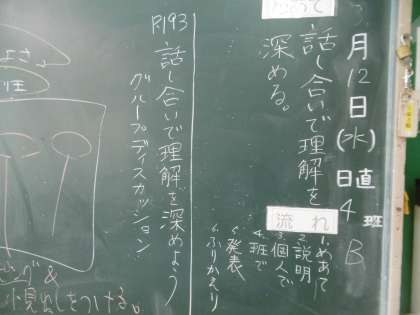 月12日(水)
日直 4班 B
めあて
話し合いで理解を
深める。
流れ
めあて
説明
個人で
4班で
発表
ふりかえり
P.193
話し合いで理解を深めよう
グループディスカッション
小見出しをつける。